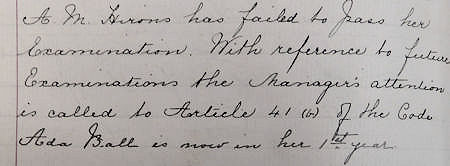 A. M. Hirons has failed to pass her
Examination. With reference to future
Examinations the Manager's attention
is called to Article 41 (b) of the Code
Ada Ball is now in her 1st year.